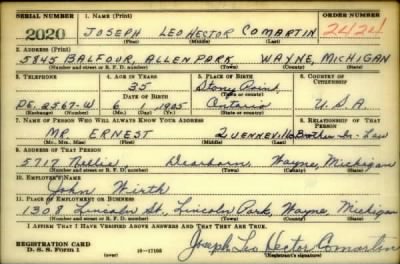 SERIAL NUMBER 1. NAME (Print) ORDER NUMBER
2020 JOSEPH LEO HECTOR COMARTIN 2424
(First) (Middle) (Last)
2. ADDRESS (Print)
5845 BALFOUR, ALLEN PARK WAYNE, MICHIGAN
(Number and street or R. F. D. number) (Town) (County) (State)
3. TELEPHONE 4. AGE IN YEARS 5. PLACE OF BIRTH 6. COUNTRY OF CITIZENSHIP
35 Stony Point,
DATE OF BIRTH (Town or county)
DE. 2567-W 6 1 1905 Ontario U.S.A.
(Exchange) (Number) (Mo.) (Day) (Yr.) (State or country)
7. NAME OF PERSON WHO WILL ALWAYS KNOW YOUR ADDRESS 8. RELATIONSHIP OF THAT PERSON
MR. ERNEST QUENNEVILLE Brother-In-Law
(Mr., Mrs., Miss) (First) (Middle) (Last)
9. ADDRESS OF THAT PERSON
5717 Dearborn, Wayne, Michigan
(Number and street or R. F. D. number) (Town) (County) (State)
10. EMPLOYER'S NAME
John Wirth
11. PLACE OF EMPLOYMENT OR BUSINESS
1308 Lincoln St., Lincoln Park, Wayne, Michigan
(Number and street or R. F. D. number) (Town) (County) (State)
I AFFIRM THAT I HAVE VERIFIED ABOVE ANSWERS AND THAT THEY ARE TRUE.
REGISTRATION CARD
D. S. S. FORM 1 (over) 16—17105 Joseph Leo Hector Comartin
(Registrant's signature)